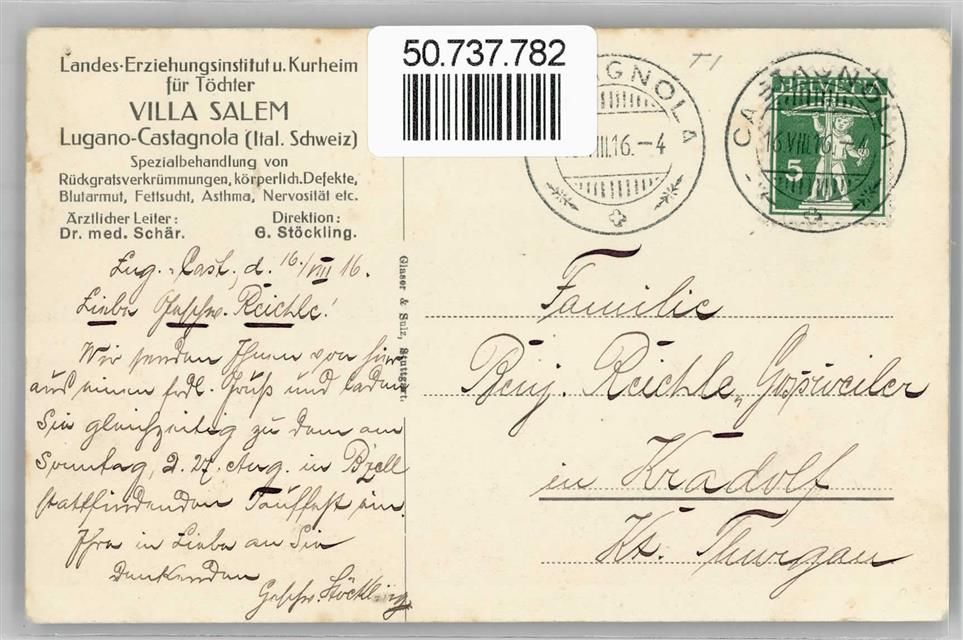 Landes-Erziehungsinstitut u. Kurheim
für Töchter
VILLA SALEM
Lugano-Castagnola (Ital. Schweiz)
Spezialbehandlung von
Rückgratsverkrümmungen, körperlich. Defekte,
Blutarmut, Fettsucht, Asthma, Nervosität etc.
Ärztlicher Leiter: Direktion:
Dr. med. Schär. G. Stöckling.
50.737.782
AGNOLA
VIII.16.-4
CASTAGNOLA
16.VIII.16.-4
HELVETIA
5
Lug.-Cast, d. 16./VIII 16.
Liebe Geschw. Reichle!
Wir senden Ihnen von hier
aus einen frdl. Gruß und laden
Sie gleichzeitig zu dem am
Sonntag, d. 27. Aug. in
stattfindenden Tauffest ein.
Ihre in Liebe an Sie
denkenden
Geschw. Stöckling
Glaser & Sulz, Stuttgart.
Familie
Benj. Reichle, Gossweiler
in Kradolf
Kt. Thurgau